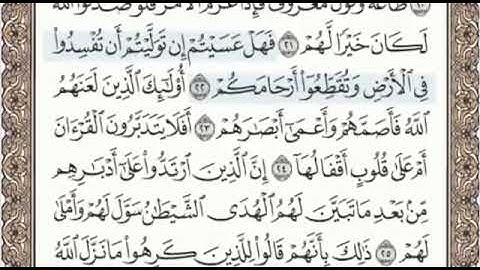 طَاعَةٌ وَقَوْلٌ مَّعْرُوفٌ فَإِذَا عَزَمَ الْأَمْرُ فَلَوْ صَدَقُوا اللَّهَ
لَكَانَ خَيْرًا لَّهُمْ ٢١ فَهَلْ عَسَيْتُمْ إِن تَوَلَّيْتُمْ أَن تُفْسِدُوا
فِي الْأَرْضِ وَتُقَطِّعُوا أَرْحَامَكُمْ ٢٢ أُولَٰئِكَ الَّذِينَ لَعَنَهُمُ
اللَّهُ فَأَصَمَّهُمْ وَأَعْمَىٰ أَبْصَارَهُمْ ٢٣ أَفَلَا يَتَدَبَّرُونَ الْقُرْءَانَ
أَمْ عَلَىٰ قُلُوبٍ أَقْفَالُهَا ٢٤ إِنَّ الَّذِينَ ارْتَدُّوا عَلَىٰ أَدْبَارِهِم
مِّن بَعْدِ مَا تَبَيَّنَ لَهُمُ الْهُدَى الشَّيْطَانُ سَوَّلَ لَهُمْ وَأَمْلَىٰ
لَهُمْ ٢٥ ذَٰلِكَ بِأَنَّهُمْ قَالُوا لِلَّذِينَ كَرِهُوا مَا نَزَّلَ اللَّهُ